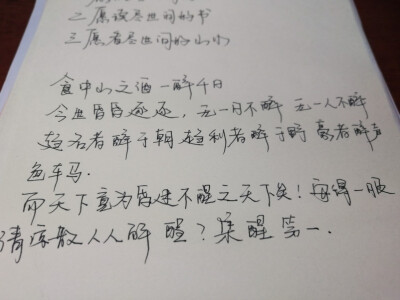 二愿读尽世间的书
三愿看尽世间的山水
食中山之酒一醉千日
今世昏昏逐逐，无一日不醉 无一人不醉
趋名者醉于朝 趋利者醉于野 豪者醉声
色车马.
而天下竟为昏迷不醒之天下矣！安得一服
清凉散人人解醒？集醒第一.